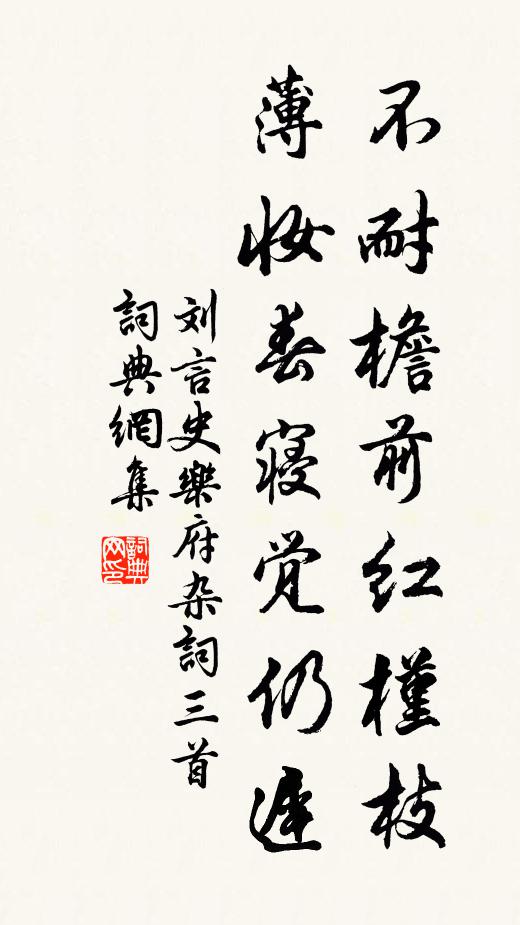 不耐檐前红槿枝
薄妆春寝觉仍迟
刘言史樂府杂詞三首
詞典網集
詞典网印